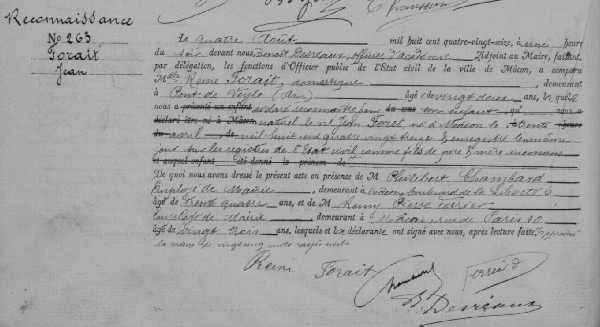 Reconnaissance
No 263
Forait
Jean
Le quatre Août mil huit cent quatre-vingt-seize, à une heure
du soir devant nous, Benoît Devreaux, officier d'Académie Adjoint au Maire, faisant,
par délégation, les fonctions d'Officier public de l'Etat civil de la ville de Mâcon, a comparu
Mlle Reine Forait, domestique, demeurant
à Pont de Veyle (Ain) âgée de vingt deux ans, laquelle
nous a présenté un enfant déclaré reconnaître pour du sexe son enfant
déclaré être né à Mâcon naturel le nl Jean Foret, né à Mâcon le trente
avril mil huit cent quatre vingt treize & enregistré le même
jour sur les registres de l'Etat civil comme fils de père & mère inconnus
et auquel enfant été donné le prénom de
De quoi nous avons dressé le présent acte en présence de M Philibert Chambard
Employé de Mairie, demeurant à Mâcon, boulevard de la Liberté 6
âgé de trente quatre ans, et de M. Rémy Pierre Terrier
Employé de Mairie, demeurant à Mâcon, rue de Paris 20
âgé de vingt trois ans, lesquels et la déclarante ont signé avec nous, après lecture faite.
la nature de vingt cinq mots rayés nuls
Reini Forait
B. Devreaux